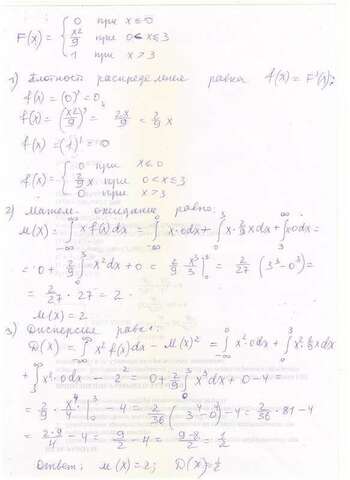 F(x) = { 0 при x ≤ 0
x²/9 при 0 < x ≤ 3
1 при x > 3
1) Плотность распределения равна f(x) = F'(x):
f(x) = (0)' = 0,
f(x) = (x²/9)' = 2x/9 = 2/9 x
f(x) = (1)' = 0
f(x) = { 0 при x ≤ 0
2/9 x при 0 < x ≤ 3
0 при x > 3
2) Матем. ожидание равно:
M(X) = ∫_{-∞}^{∞} x f(x) dx = ∫_{-∞}^{0} x·0 dx + ∫_{0}^{3} x·2/9 x dx + ∫_{3}^{∞} x·0 dx =
= 0 + 2/9 ∫_{0}^{3} x² dx + 0 = 2/9 x³/3 |_{0}^{3} = 2/27 (3³ - 0³) =
= 2/27 · 27 = 2.
M(X) = 2
3) Дисперсия равна:
D(X) = ∫_{-∞}^{∞} x² f(x) dx - M(X)² = ∫_{-∞}^{0} x²·0 dx + ∫_{0}^{3} x²·2/9 x dx
+ ∫_{3}^{∞} x²·0 dx - 2² = 0 + 2/9 ∫_{0}^{3} x³ dx + 0 - 4 =
= 2/9 · x⁴/4 |_{0}^{3} - 4 = 2/36 (3⁴ - 0⁴) - 4 = 2/36 · 81 - 4
= 2·9/4 - 4 = 9/2 - 4 = 9-8/2 = 1/2
Ответ: M(X) = 2; D(X) = 1/2